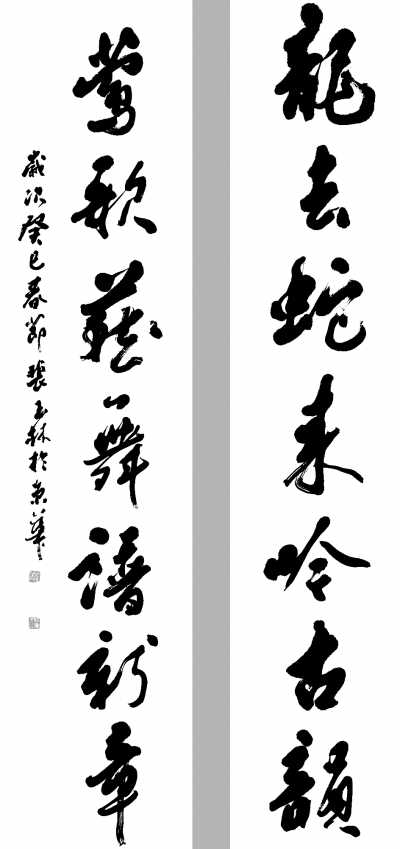 龍去蛇来吟古韻
莺歌燕舞譜新章
歲次癸巳春節裴玉林於京華